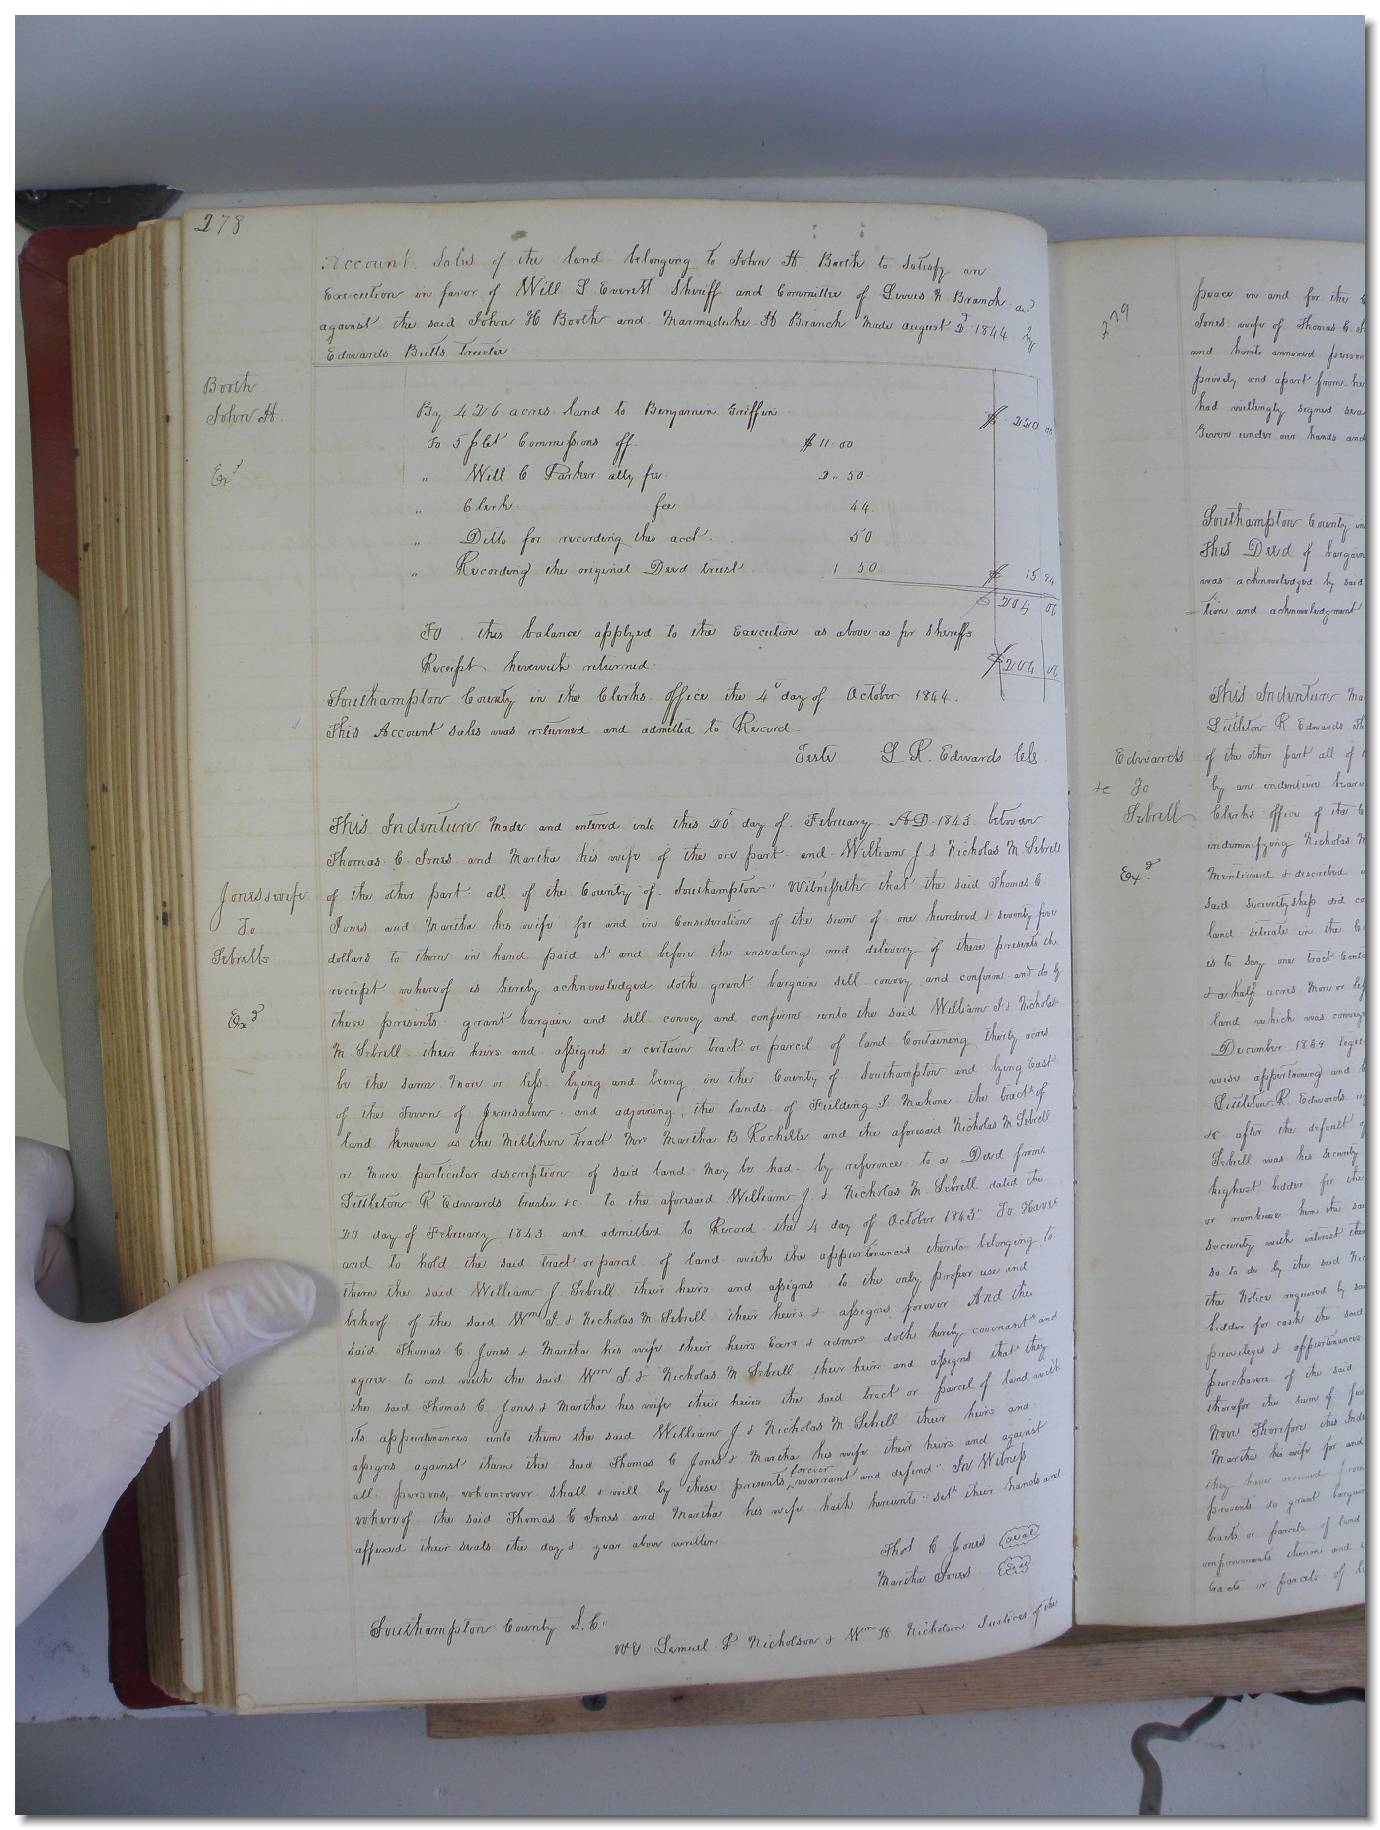 278
Account Sales of the land belonging to John H Booth to Satisfy an
Execution in favor of Will S Everett Sheriff and Committee of Lewis N Branch
against the said John H Booth and Marmaduke H Branch Made august 2d 1844 by
Edwards Butts trustee
Booth
John H.
Exd
By 426 acres land to Benjamin Griffin $ 220 00
To 5 pCt Commissions off $ 11 00
" Will C Parker atty fee 2 50
" Clerk fee 44
" Ditto for recording this acct. 50
" Recording the original Deed trust 1 50 $ 15 94
204 06
To this balance applyed to the Execution as above as per Sheriffs
Receipt herewith returned $ 204 06
Southampton County in the Clerks office the 4th day of October 1844.
This Account sales was returned and admitted to Record.
Teste L R. Edwards Cls
This Indenture Made and entered into this 26th day of February AD 1843 between
Thomas C. Jones and Martha his wife of the one part and William J & Nicholas M. Sebrell
Jones & wife
To
Sebrells
Exd
of the other part all of the County of Southampton" Witnesseth that the said Thomas C.
Jones and Martha his wife for and in Consideration of the sum of one hundred & seventy five
dollars to them in hand paid at and before the ensealing and delivery of these presents the
receipt whereof is hereby acknowledged doth grant bargain sell convey and confirm and do by
these presents grant bargain and sell convey and confirm unto the said William J & Nicholas
M Sebrell their heirs and assigns a certain tract or parcel of land Containing thirty acres
be the same more or less lying and being in the County of Southampton and lying East
of the Town of Jerusalem and adjoining the lands of Fielding J Mahone the tract of
land known as the Milliken tract Mrs Martha B Rochelle and the aforesaid Nicholas M Sebrell
a more particular description of said land may be had by reference to a Deed from
Littleton R Edwards trustee &c to the aforesaid William J & Nicholas M. Sebrell dated the
day of February 1843 and admitted to Record the 4 day of October 1843" To Have
and to hold the said tract or parcel of land with the appurtenances thereto belonging to
them the said William J. Sebrell their heirs and assigns to the only proper use and
behoof of the said Wm J & Nicholas M Sebrell their heirs & assigns forever And the
said Thomas C Jones & Martha his wife their heirs Exors & admrs doth hereby covenant and
agree to and with the said Wm J & Nicholas M Sebrell their heirs and assigns that they
the said Thomas C Jones & Martha his wife their heirs the said tract or parcel of land with
its appurtenances unto them the said William J & Nicholas M Sebrell their heirs and
assigns against them the said Thomas C Jones & Martha his wife their heirs and against
all persons, whomsoever shall & will by these presents forever warrant and defend" In Witness
whereof the said Thomas C Jones and Martha his wife hath hereunto set their hands and
affixed their seals the day & year above written
Thos C Jones seal
Martha Jones seal
Southampton County S.C."
We Samuel P Nicholson & Wm H Nicholson Justices of the
279
peace in and for the
Jones wife of Thomas C.
and hereto annexed
privily and apart from
had willingly signed
Given under our hands and
Southampton County
This Deed of bargain
was acknowledged by said
tion and acknowledgment
This Indenture
Littleton R Edwards
Edwards
&c To
Sebrell
Exd
of the other part all of
by an indenture
Clerks office of the
indemnifying Nicholas
Mentioned & described
said suretyship did
land situate in the
is to say one tract
& a half acres more or less
land which was
December 1839
wise appertaining and
Littleton R. Edwards
&c after the default
Sebrell was his security
highest bidder for
or reimburse him the
security with interest
so to do by the said
the Notice required by
bidder for cash the said
privileges & appurtenances
purchaser of the said
therefor the sum of
Now Therefore this
Martha his wife for and
they have received from
presents do grant bargain
tracts or parcels of land
improvements thereon and
tracts or parcels of